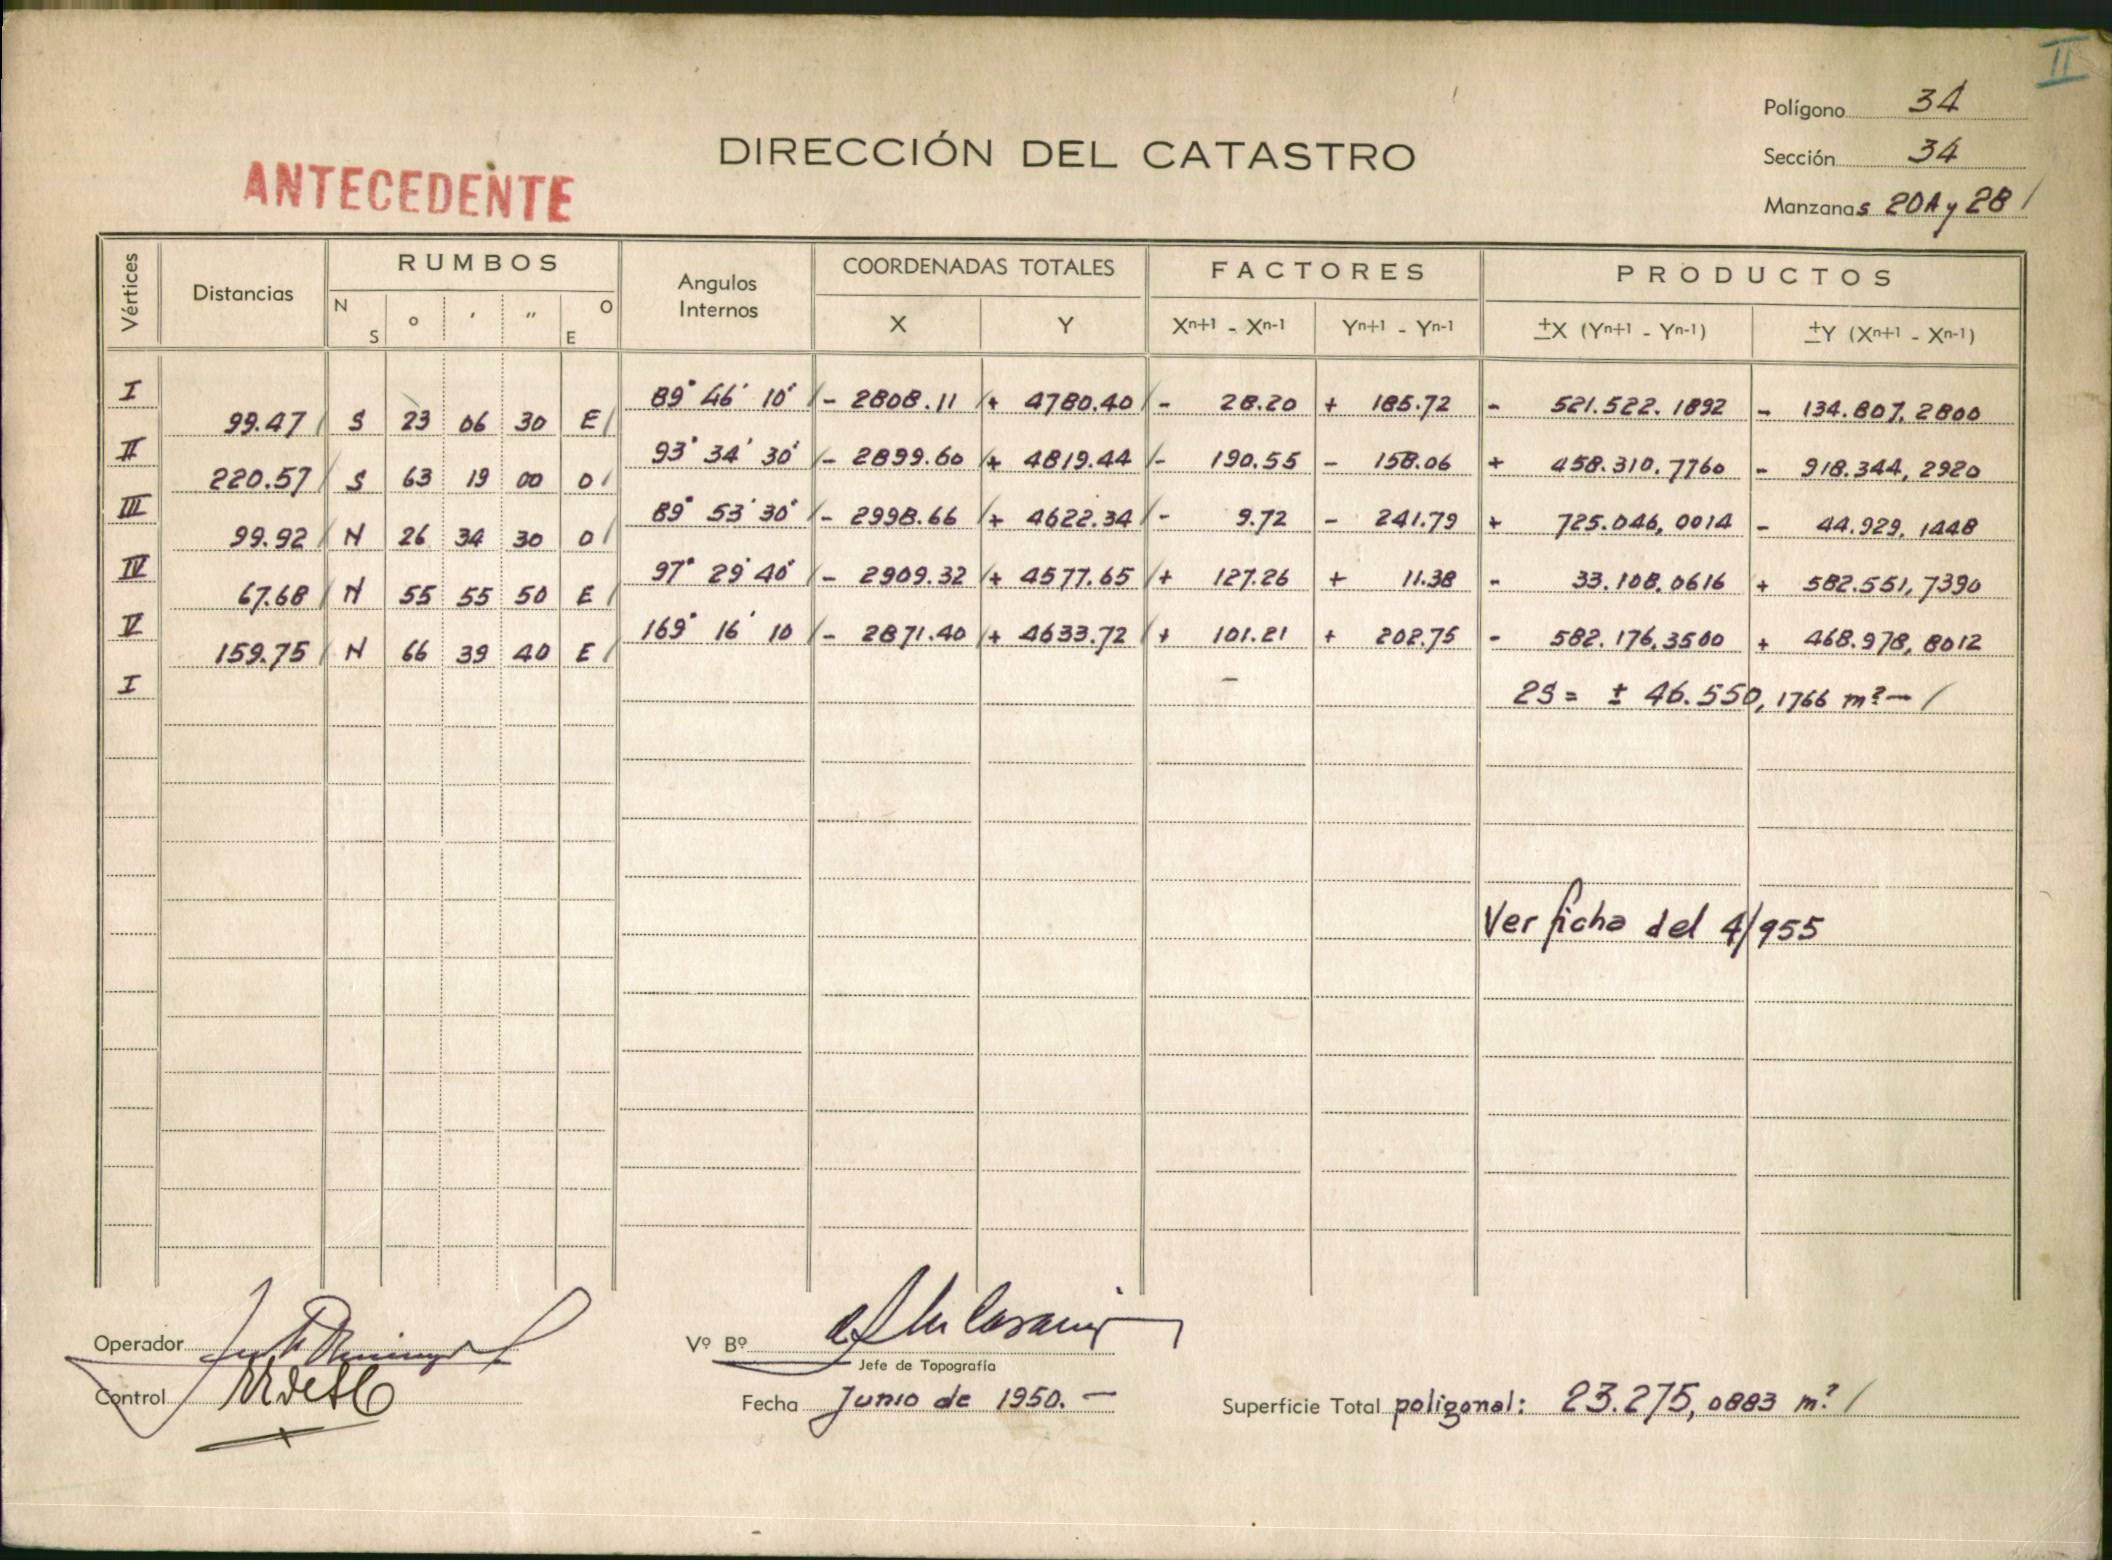 II
Polígono 34
DIRECCIÓN DEL CATASTRO
Sección 34
ANTECEDENTE
Manzanas 20A y 28 /
Vértices Distancias RUMBOS Angulos Internos COORDENADAS TOTALES FACTORES PRODUCTOS
N S ° ' " O E X Y Xn+1 - Xn-1 Yn+1 - Yn-1 ±X (Yn+1 - Yn-1) ±Y (Xn+1 - Xn-1)
I 89° 46' 10" / - 2808.11 / + 4780.40 / - 28.20 + 185.72 - 521.522.1892 - 134.807,2800
99.47 / S 23 06 30 E /
II 93° 34' 30" / - 2899.60 / + 4819.44 / - 190.55 - 158.06 + 458.310.7760 - 918.344,2920
220.57 / S 63 19 00 O /
III 89° 53' 30" / - 2998.66 / + 4622.34 / - 9.72 - 241.79 + 725.046,0014 - 44.929,1448
99.92 / N 26 34 30 O /
IV 97° 29' 40" / - 2909.32 / + 4577.65 / + 127.26 + 11.38 - 33.108,0616 + 582.551,7390
67.68 / N 55 55 50 E /
V 169° 16' 10 / - 2871.40 / + 4633.72 / + 101.21 + 202.75 - 582.176,3500 + 468.978,8012
159.75 / N 66 39 40 E /
I 2S = ± 46.550,1766 m² - /
Ver ficha del 4/955
Operador
Vº Bº
Jefe de Topografía
Control
Fecha Junio de 1950. -
Superficie Total poligonal: 23.275,0883 m² /